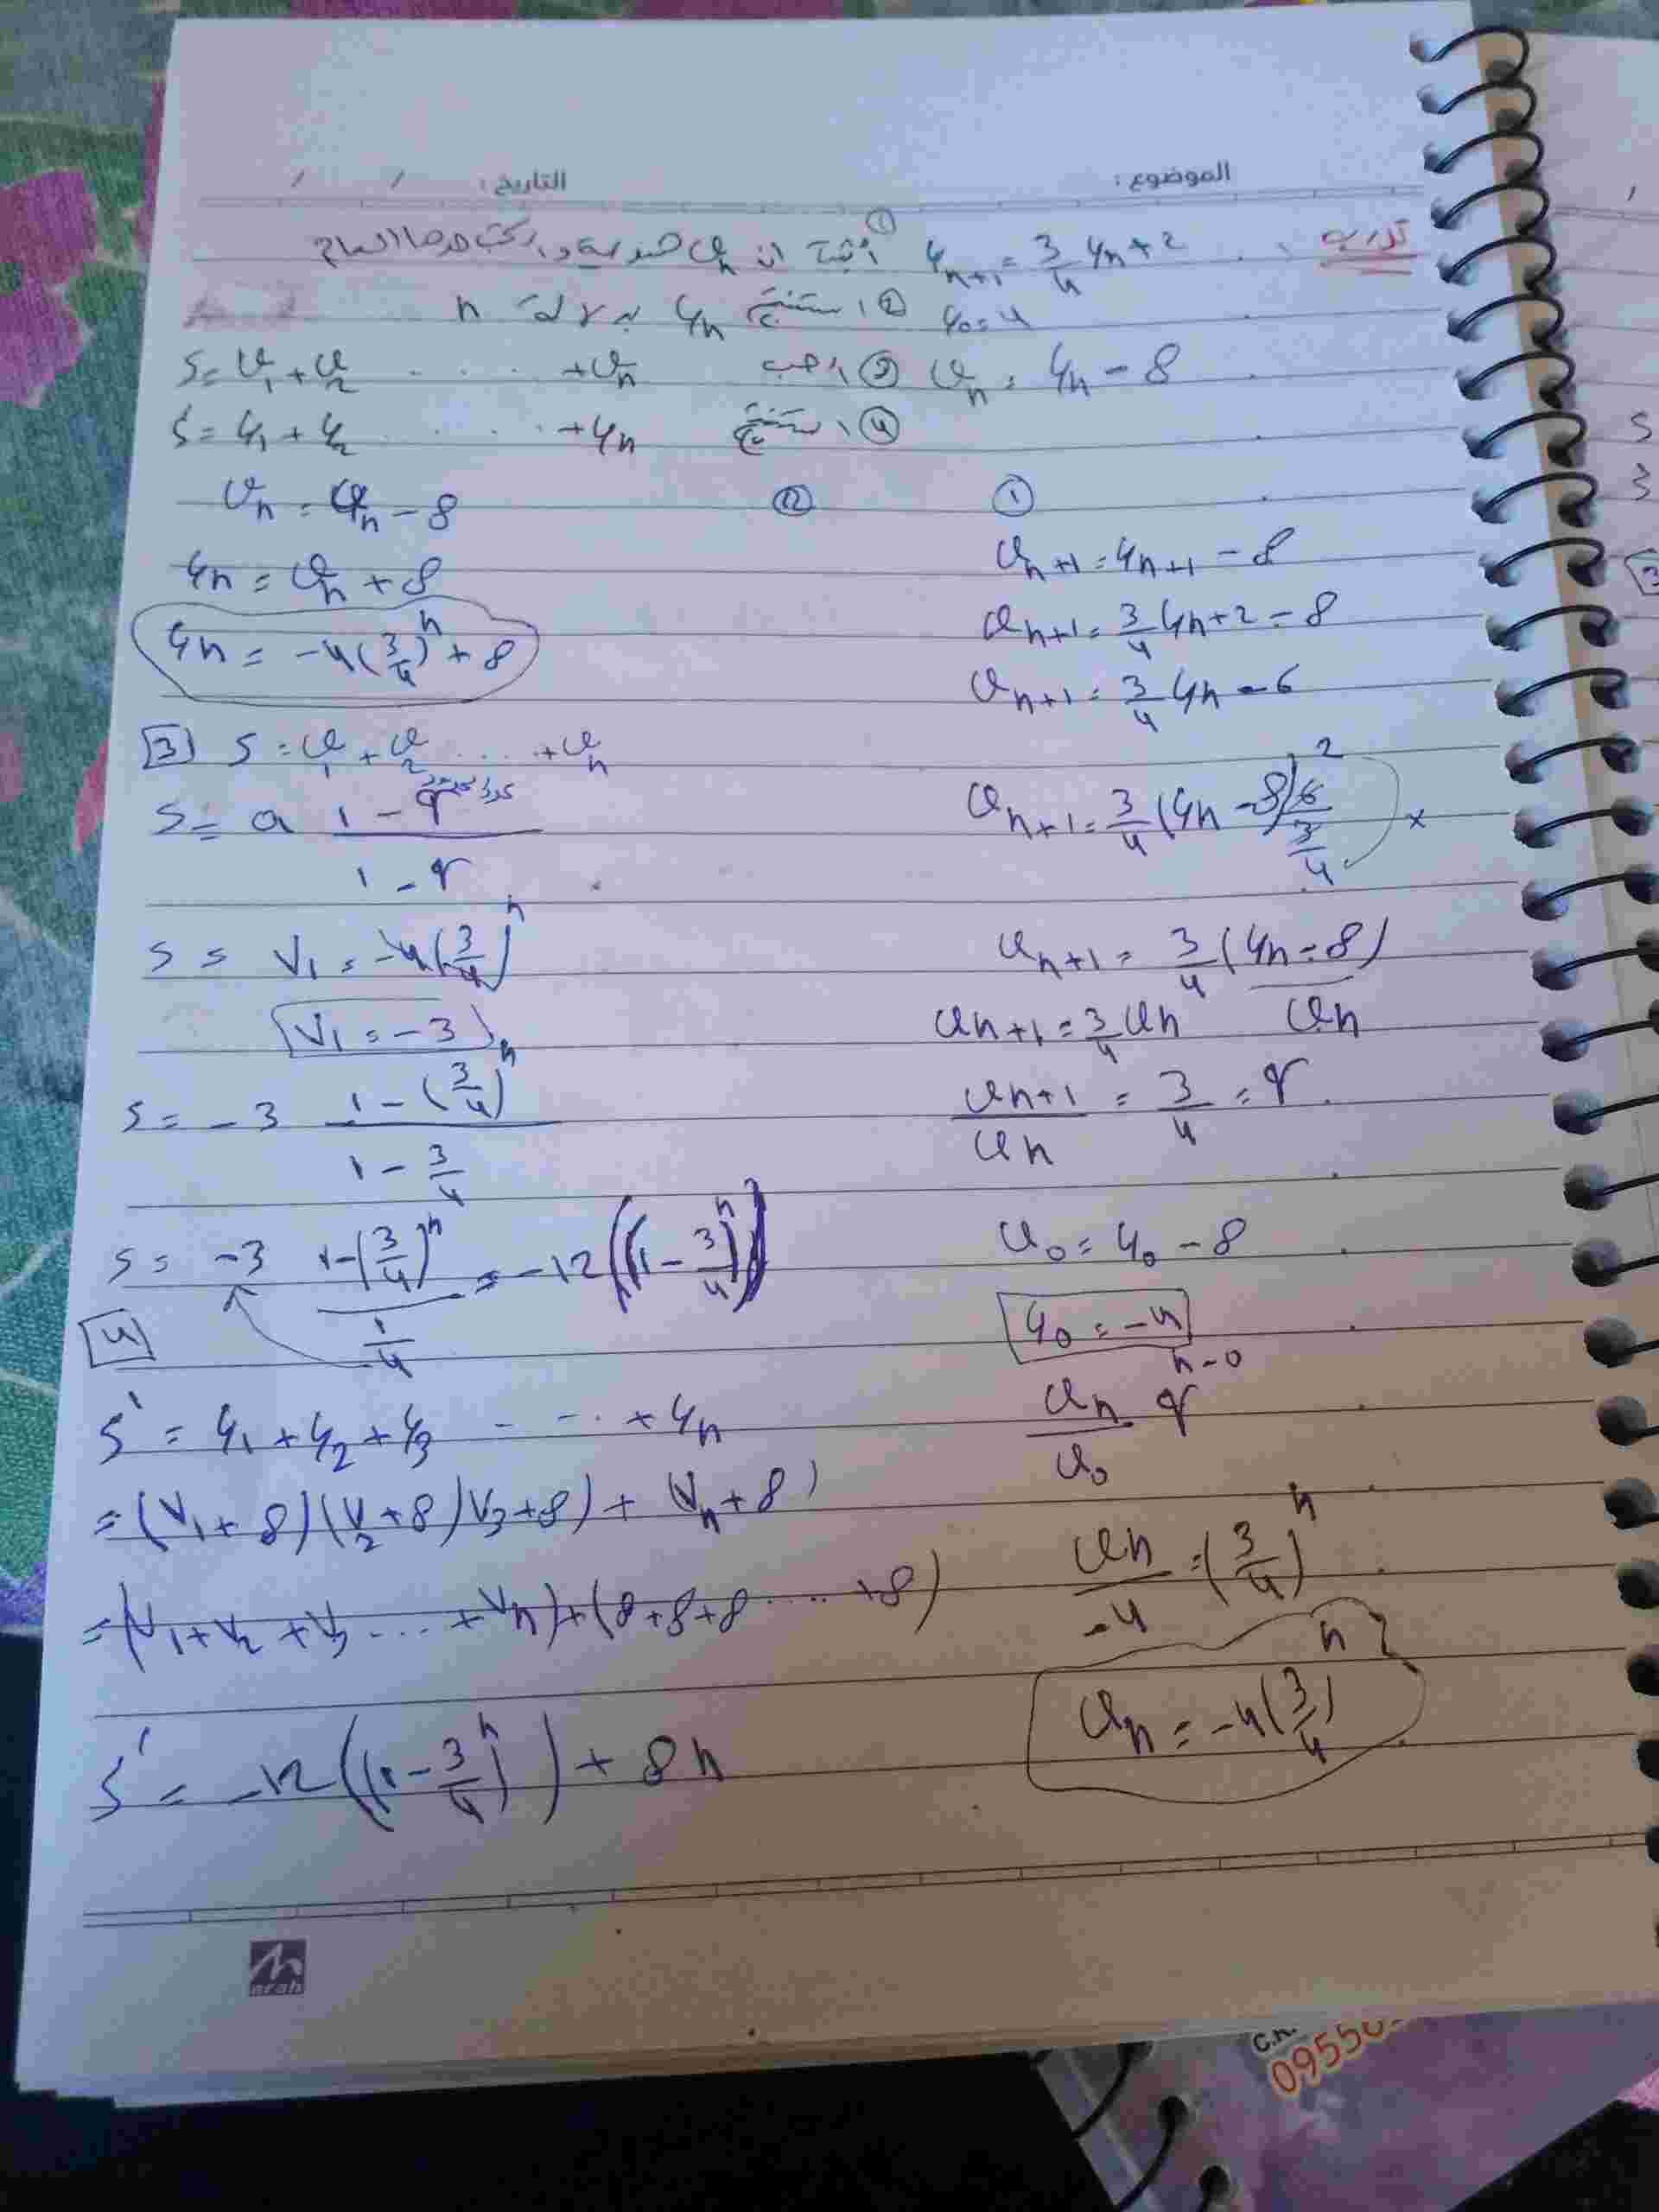 الموضوع : التاريخ : / /
تدريب : u_{n+1} = 3/4 u_n + 2 ① أثبت ان v_n هندسية واكتب حدها العام
u_0 = 4 ② استنتج u_n بدلالة n
v_n = u_n - 8 ③ احسب S = v_1 + v_2 . . . . + v_n
④ استنتج S' = u_1 + u_2 . . . . . + u_n
①
v_{n+1} = u_{n+1} - 8
v_{n+1} = 3/4 u_n + 2 - 8
v_{n+1} = 3/4 u_n - 6
v_{n+1} = 3/4 (u_n - 8) 6/(3/4) 2 ×
v_{n+1} = 3/4 (u_n - 8)
v_{n+1} = 3/4 v_n v_n
v_{n+1}/v_n = 3/4 = q
v_0 = u_0 - 8
u_0 = -4
v_n/v_0 q^{n-0}
v_n/-4 = (3/4)^n
v_n = -4(3/4)^n
②
v_n = u_n - 8
u_n = v_n + 8
u_n = -4(3/4)^n + 8
3 S = v_1 + v_2 . . . . + v_n
S = a (1 - q^{عدد الحدود})/(1 - q)
S = V_1 = -4(3/4)^n
V_1 = -3
S = -3 (1 - (3/4)^n)/(1 - 3/4)
S = -3 (1-(3/4)^n)/(1/4) = -12((1 - 3/4)^n)
4
S' = u_1 + u_2 + u_3 - - . . + u_n
= (V_1 + 8)(V_2 + 8)V_3 + 8) + (V_n + 8)
= (V_1 + V_2 + V_3 . . . + V_n) + (8 + 8 + 8 . . . . + 8)
S' = -12((1 - 3/4)^n) + 8n
arab
C.n.
0955